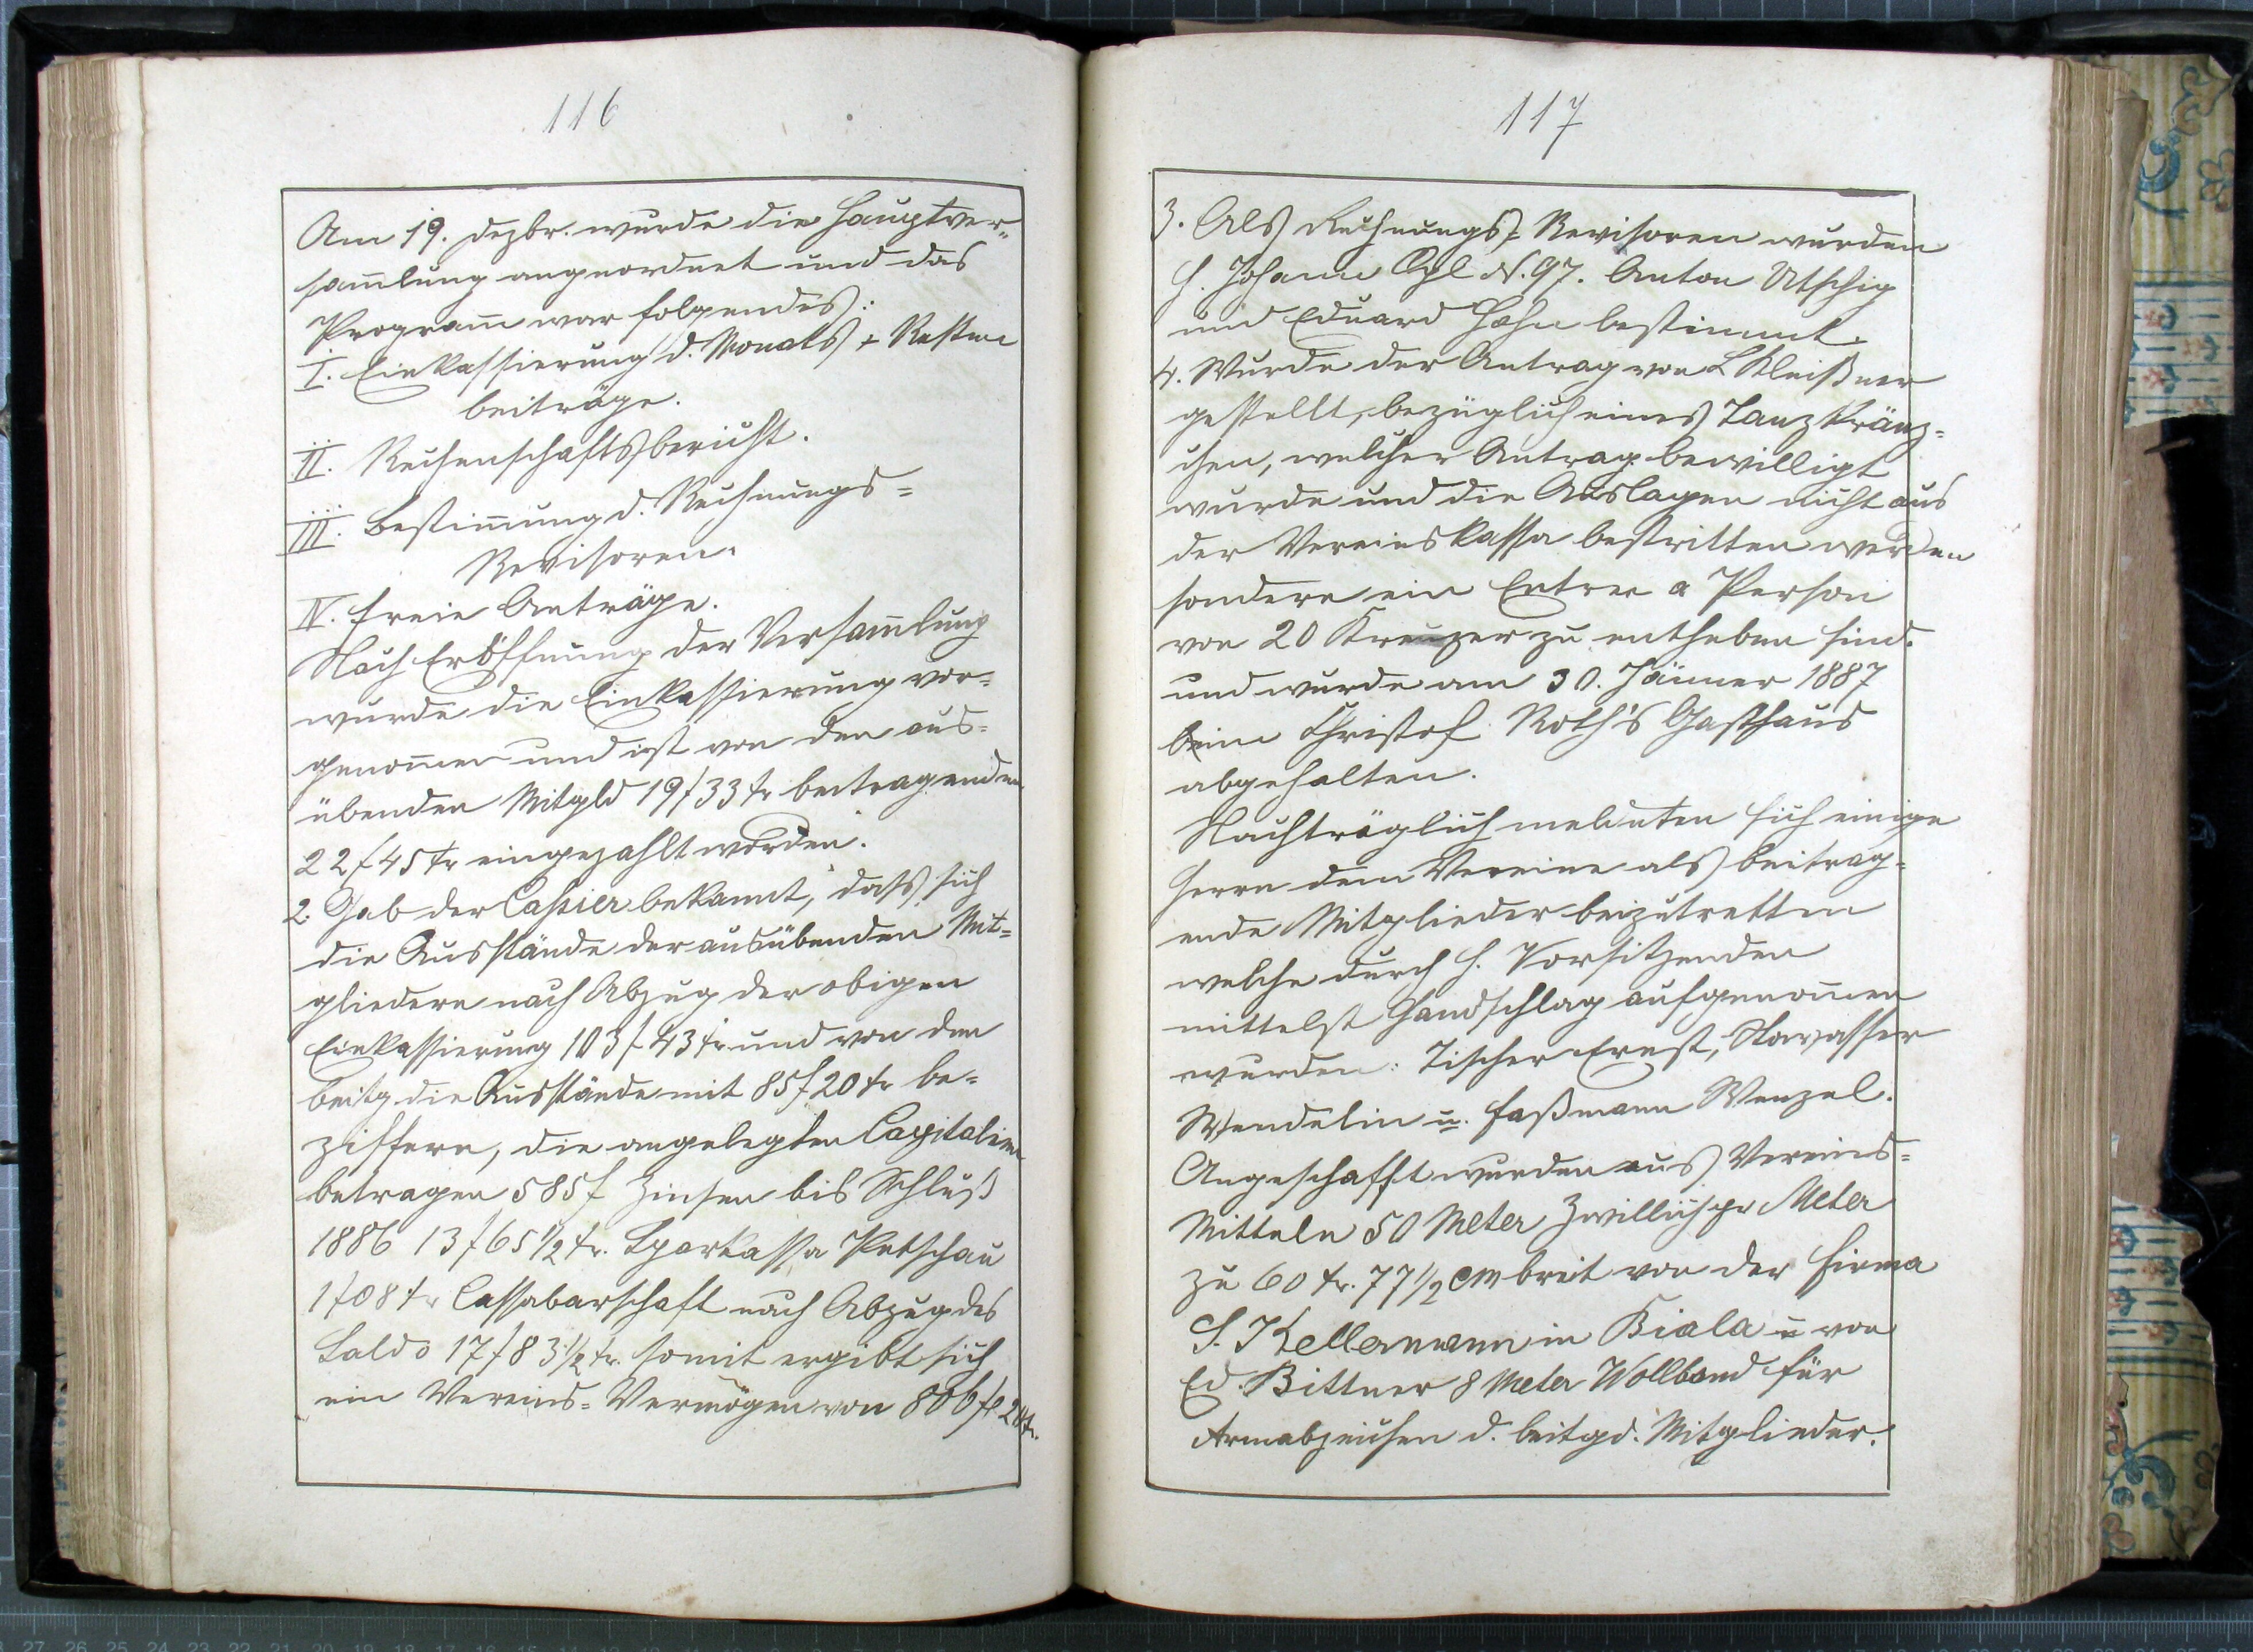 116
Am 19. Dezbr. wurde die Hauptver„
sam̄lung angeordnet und das
Program̄ war folgendes:
I. Einkassierung d. Monats + Resten
beiträge.
II. Rechenschaftsbericht.
III. Bestim̄ung d. Rechnungs=
Revisoren.
IV. Freie Anträge.
Nach Eröffnung der Versam̄lung
wurde die Einkassierung vor=
genom̄en und ist von den aus=
übenden Mitgld 19f 33 kr beitragenden
22f 45 kr eingezahlt worden.
2. Gab der Cassier bekannt, dass sich
die Ausstände der ausübenden Mit=
gliedern nach Abzug der obigen
Einkassierung 103f 43 kr und von den
beitg. die Ausstände mit 85f 20 kr be=
ziffern, die angelegten Capitalien
betragen 585f Zinsen bis Schluß
1886 13f 65½ kr. Sparkassa Petschau
1f 08 kr Cassabarschaft nach Abzug des
Saldo 17f 83½ kr. somit ergibt sich
ein Vereins=Vermögen von 806 fl 20 kr.
117
3. Als Rechnungs=Revisoren wurden
H. Johann N. 97. Anton Utschig
und Eduard Hahn bestimmt.
4. Wurde der Antrag von L Kleißner
gestellt, bezüglich eines Tanzkränz=
chen, welcher Antrag bewilligt
wurde und die Auslagen nicht aus
der Vereinskassa bestritten werden
sondern ein Entree a Person
von 20 Kreuzer zu entheben sind.
und wurde am 30. Jänner 1887
beim Christof Roth's Gasthaus
abgehalten.
Nachträglich meldeten sich einige
Herrn dem Vereine als beitrag=
ende Mitglieder beizutretten
welche durch H. Vorsitzenden
mittelst Handschlag aufgenom̄en
wurden: Tischer Ernst, Nawasser
Wendelin u. Faßmann Wenzel.
Angeschafft wurden aus Vereins=
Mitteln 50 Meter Zwillich pr Meter
zu 60 kr. 77½ cm breit von der Firma
S. Kellermann in Biala u von
Ed. Bittner 8 Meter Wollband für
Armabzeichen d. beitgd. Mitglieder.